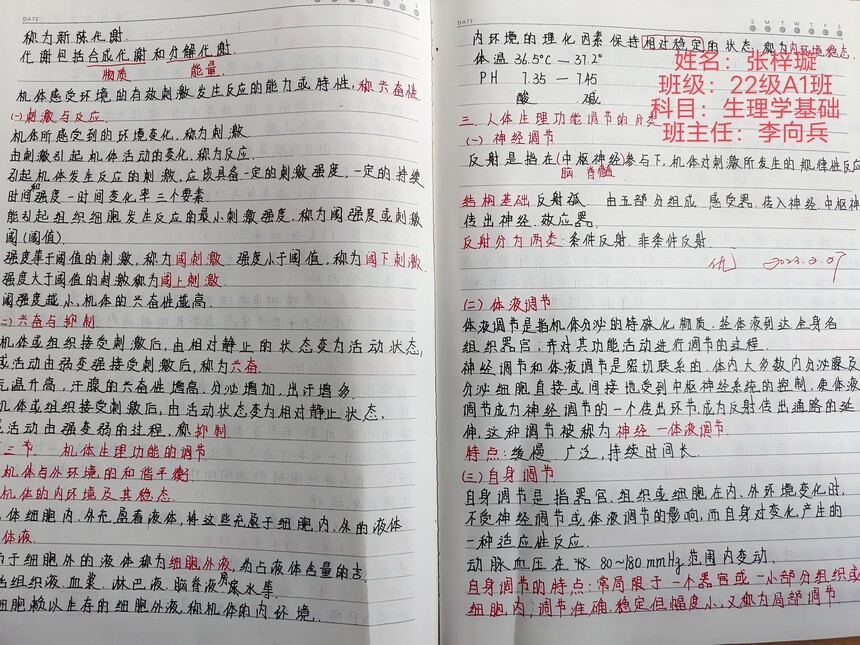 DATE
称为新陈代谢.
代谢包括合成代谢和分解代谢.
物质 能量.
机体感受环境的有效刺激发生反应的能力或特性,称兴奋性.
(一)刺激与反应.
机体所感受到的环境变化,称为刺激.
由刺激引起机体活动的变化,称为反应.
引起机体发生反应的刺激,应该具备一定的刺激强度,一定的持续
时间和强度一时间变化率三个要素.
能引起组织细胞发生反应的最小刺激强度,称为阈强度或刺激
阈(阈值).
强度等于阈值的刺激,称为阈刺激.强度小于阈值,称为阈下刺激.
强度大于阈值的刺激称为阈上刺激.
阈强度越小,机体的兴奋性越高.
二)兴奋与抑制
机体或组织接受刺激后,由相对静止的状态变为活动状态,
或活动由弱变强接受刺激后,称为兴奋.
气温升高,汗腺的兴奋性增高.分泌增加,出汗增多.
机体或组织接受刺激后,由活动状态变为相对静止状态.
或活动由强变弱的过程,称抑制
三节 机体生理功能的调节
机体与外环境的和谐平衡
机体的内环境及其稳态.
体细胞内、外充盈着液体,将这些充盈于细胞内、外的液体
体液.
于细胞外的液体称为细胞外液,约占液体含量的
组织液.血浆.淋巴液.脑脊液.房水等.
细胞赖以生存的细胞外液,称机体的内环境.
DATE
S M T W T F S
内环境的理化因素保持相对稳定的状态,称为内环境稳态.
体温36.5℃—37.2°
PH 7.35—7.45
酸 碱
姓名：张梓璇
班级：22级A1班
科目：生理学基础
班主任：李向兵
三.人体生理功能调节的分类
(一)神经调节
反射是指在(中枢神经)参与下,机体对刺激所发生的规律性反应
脑 脊髓
结构基础反射弧.由五部分组成 感受器.传入神经.中枢神
传出神经.效应器.
反射分为两类:条件反射.非条件反射.
优 2023.2.07
(二)体液调节
体液调节是指机体分泌的特殊化物质.经体液到达全身各
组织器官,并对其功能活动进行调节的过程.
神经调节和体液调节是密切联系的.体内大多数内分泌腺及
分泌细胞直接或间接地受到中枢神经系统的控制,使体液
调节成为神经调节的一个传出环节.成为反射传出通路的延
伸,这种调节被称为神经一体液调节.
特点:缓慢 广泛,持续时间长.
(三)自身调节
自身调节是指器官、组织或细胞在内、外环境变化时,
不受神经调节或体液调节的影响,而自身对变化产生的
一种适应性反应.
动脉血压在 80~180mmHg范围内变动.
自身调节的特点:常局限于一个器官或一小部分组织或
细胞内;调节准确.稳定但幅度小,又称为局部调节